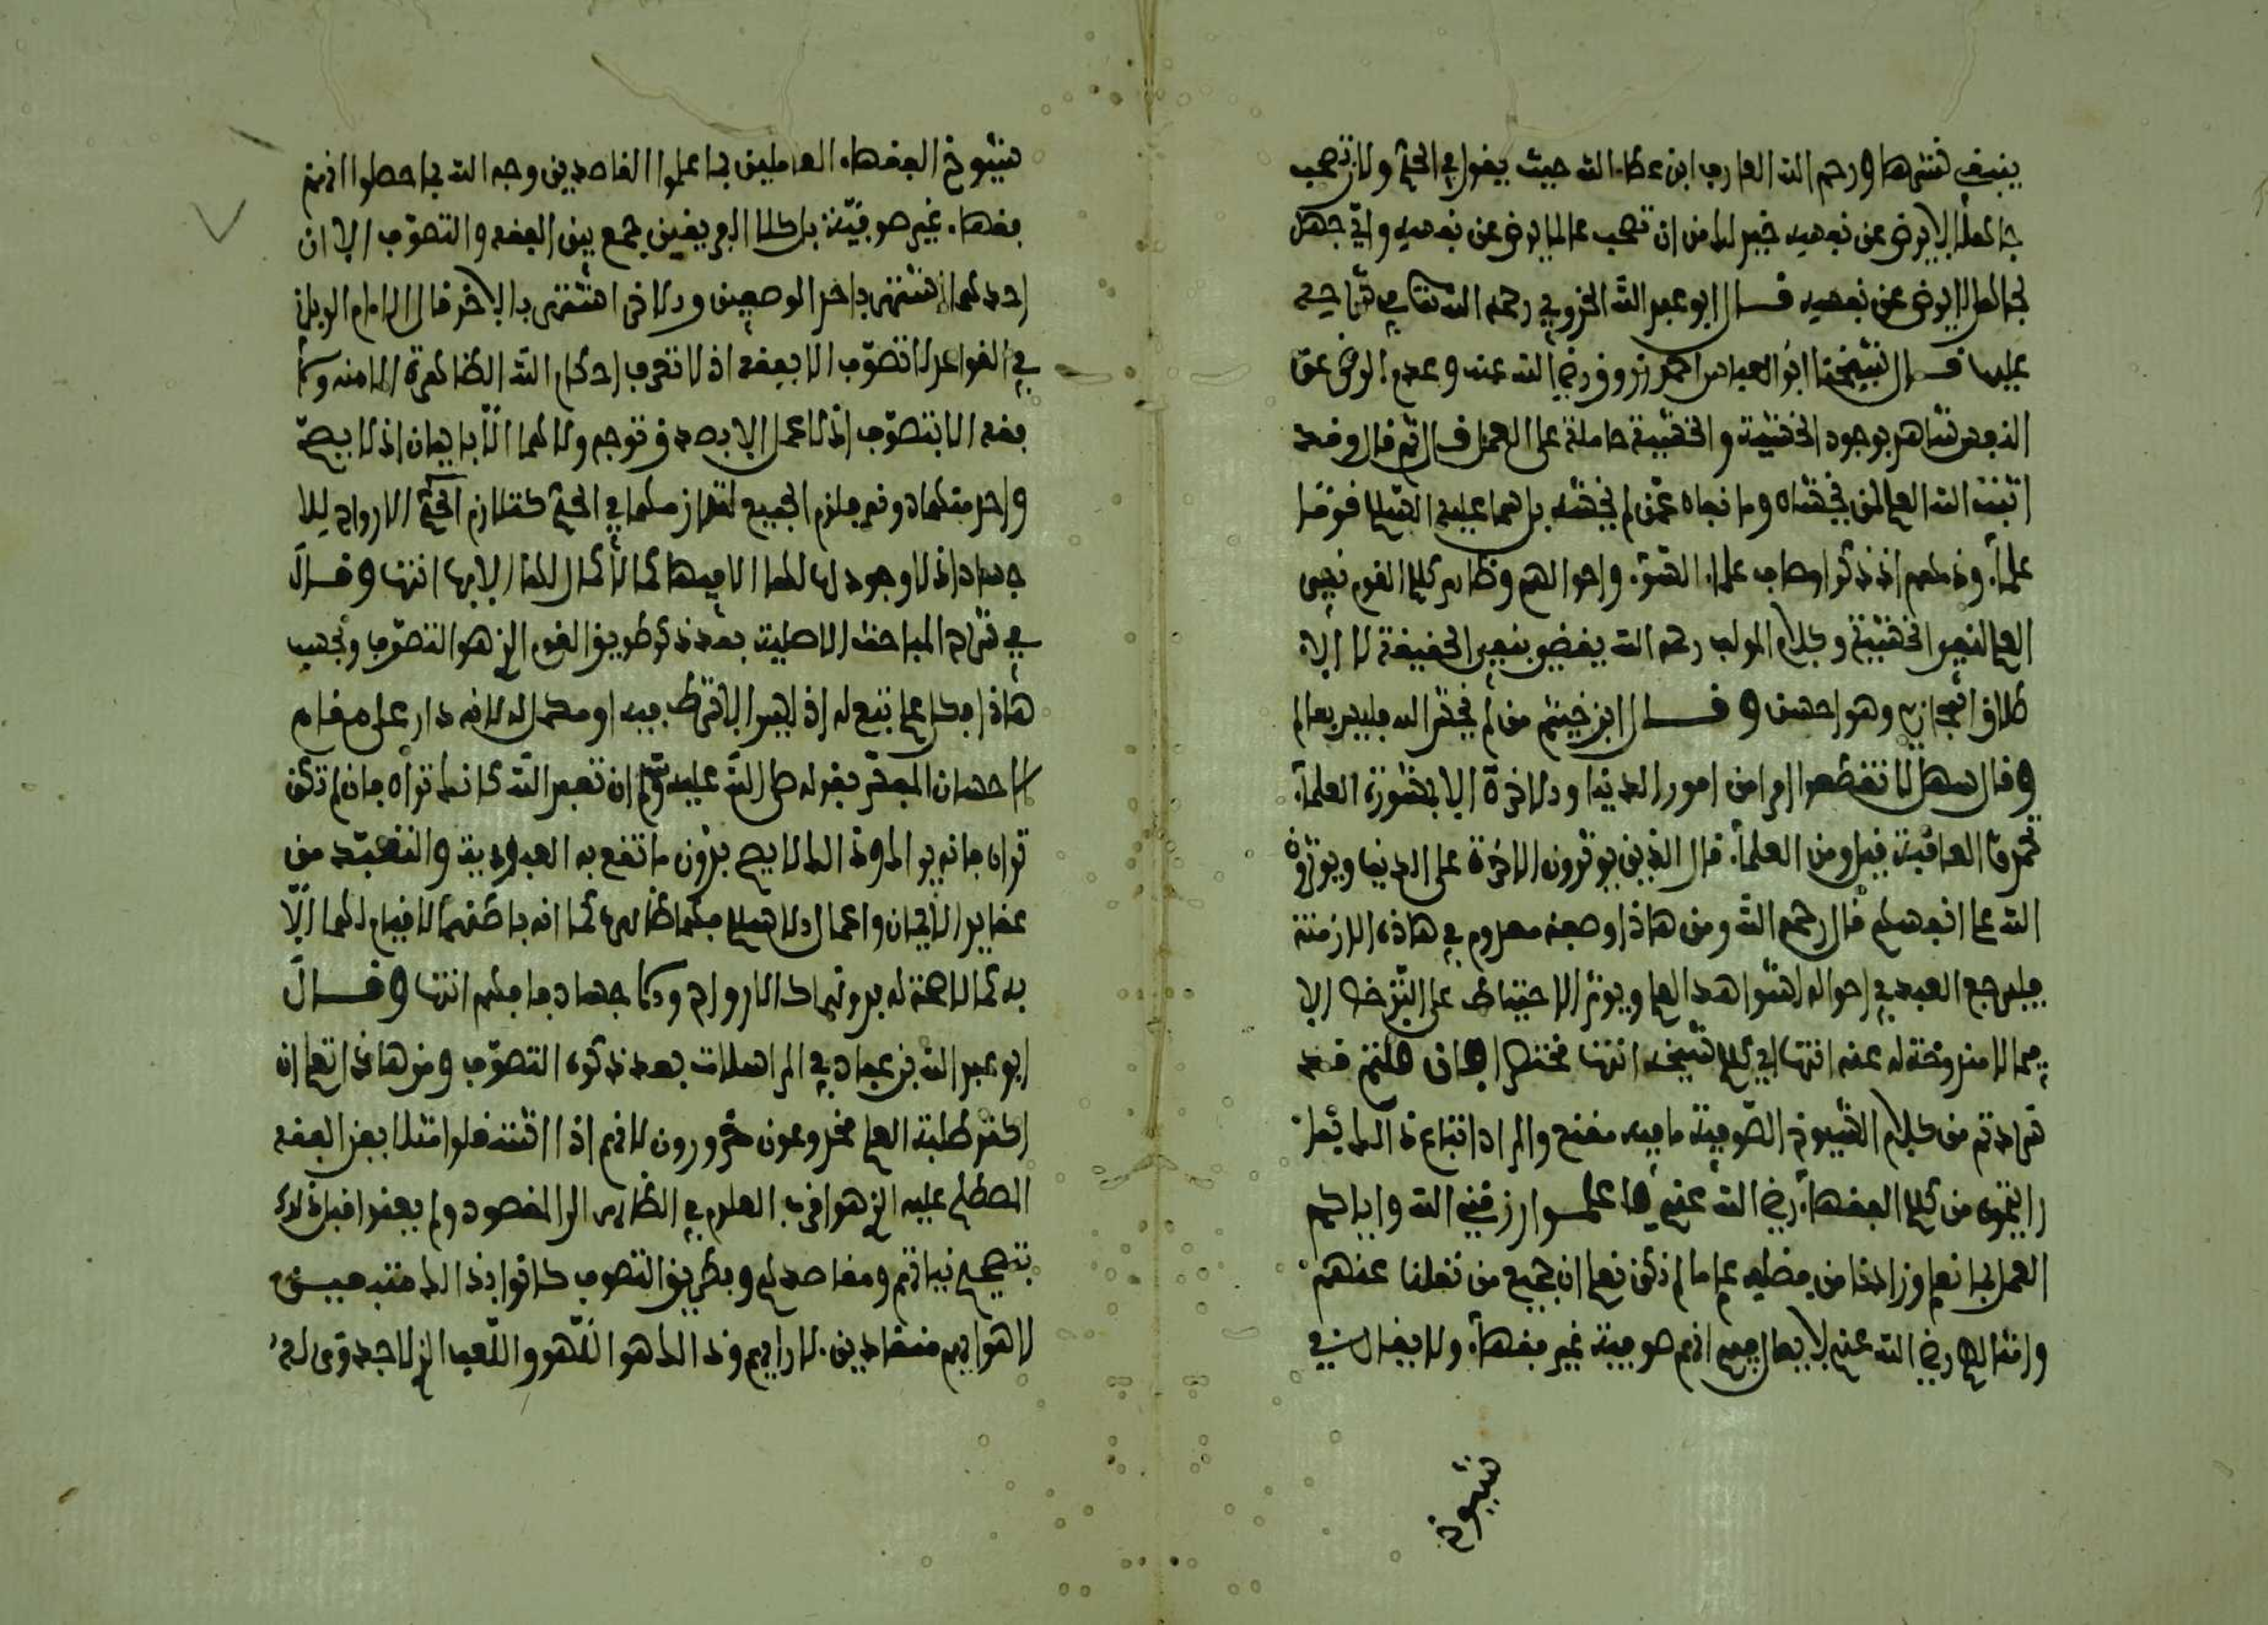 ينبغي شيئها ورحم الله العارف ابن عطاء الله حيث يقول في الحكم ولان تصحب
جاهلا لا يرضى عن نفسه خير لك من ان تصحب عالما يرضى عن نفسه واي جهل
لجاهل لا يرضى عن نفسه قــال ابو عبد الله الخروبي رحمه الله تعالى في شرحه
عليها قــال شيخنا ابو العباس احمد زروق رضي الله عنه وعدم الرضى عن
النفس شاهد بوجود الخشية والخشية حاملة على العمل قال ثم قال وقد
اثبت الله العلم لمن يخشاه وما نفاه عمن لم يخشه بل هما عليه السلام قوما
علماء وذمهم اذ ذكر اوصاف علماء السوء واحوالهم وظاهر كلام القوم نفي
العلم لنفي الخشية وكلام المولف رحمه الله يقضي بنفي الحقيقة لا الا
طلاق المجازي وهو احسن وقــال ابن خيثم من لم يخش الله فليس بعالم
وقال سهل لا تقطعوا امرا من امور الدنيا والاخرة الا بمشورة العلماء
تحمدوا العاقبة قيل ومن العلماء قال الذين يوثرون الاخرة على الدنيا ويوثرون
الله على انفسهم قال رحمه الله ومن هاذا وصفه معدوم في هاذه الازمنة
فليرجع العبد في احواله لشواهد العلم ويوثر الاحتياط على الترخص الا
فيما لا مندوحة له عنه انتهى اي كلام شيخه انتهى مختصرا فان قلتم قد
سردتم من كلام الشيوخ الصوفية ما فيه مقنع والمراد اتباع ذالك بشيء
رايتموه من كلام الفقهاء رضي الله عنهم فاعلمــوا رزقني الله واياكم
العمل بما نعلم وزادنا من فضله علم ما لم نكن نعلم ان جميع من نقلنا عنهم
وامثالهم رضي الله عنهم لا يقال فيهم انهم صوفية غير فقهاء ولا يقال في
شيوخ
شيوخ الفقهاء العاملين بما علموا القاصدين وجه الله بما حصلوا انهم
فقهاء غير صوفية بل كلا الفريقين جمع بين الفقه والتصوف الا ان
احدهما اشتهر باحد الوصفين والاخر اشتهر بالاخر قال الامام الربان
في القواعد لا تصوف الا بفقه اذ لا تعرف احكام الله الظاهرة الا منه ولا
فقه الا بتصوف اذ لا عمل الا بصدق وتوجه ولا هما الا بايمان اذ لا يصح
واحد منهما دونه فلزم الجميع لتلازمها في الحكم كتلازم الارواح للا
جساد اذ لا وجود لها الا فيها كما لا كمال لها الا بها انتهى وقــال
في شرح المباحث الاصلية بعد ذكر طريق القوم الذي هو التصوف ونحسب
هاذا فكل علم تبع له اذ ليس الا شرط فيه او مكمل له لانه دار على مقام
الاحسان المفسر بقوله صلى الله عليه وسلم ان تعبد الله كانك تراه فان لم تكن
تراه فانه يراك وذالك لا يصح بدون ما تقع به العبودية والتعبد من
عقايد الايمان واعمال الاسلام فكما ظاهره كما انه باطنها لا قيام لهما الا
به كما لا صحة له بدونهما كالارواح والاجساد فافهم انتهى وقــال
ابو عبد الله بن عباد في المراسلات بعد ذكره التصوف ومن هاذا تعلم ان
اكثر طلبة العلم مخدوعون مغرورون لانهم اذا اشتغلوا مثلا بفن الفقه
المصطلح عليه الذي هو اقرب العلوم في الظاهر الى المقصود ولم يعنوا قبل ذلك
بتصحيح نياتهم ومقاصدهم وبطريق التصوف كانوا بذالك متبعيــن
لاهوايهم منقادين لارايهم وذالك هو اللهو واللعب الذي لا جدوى له